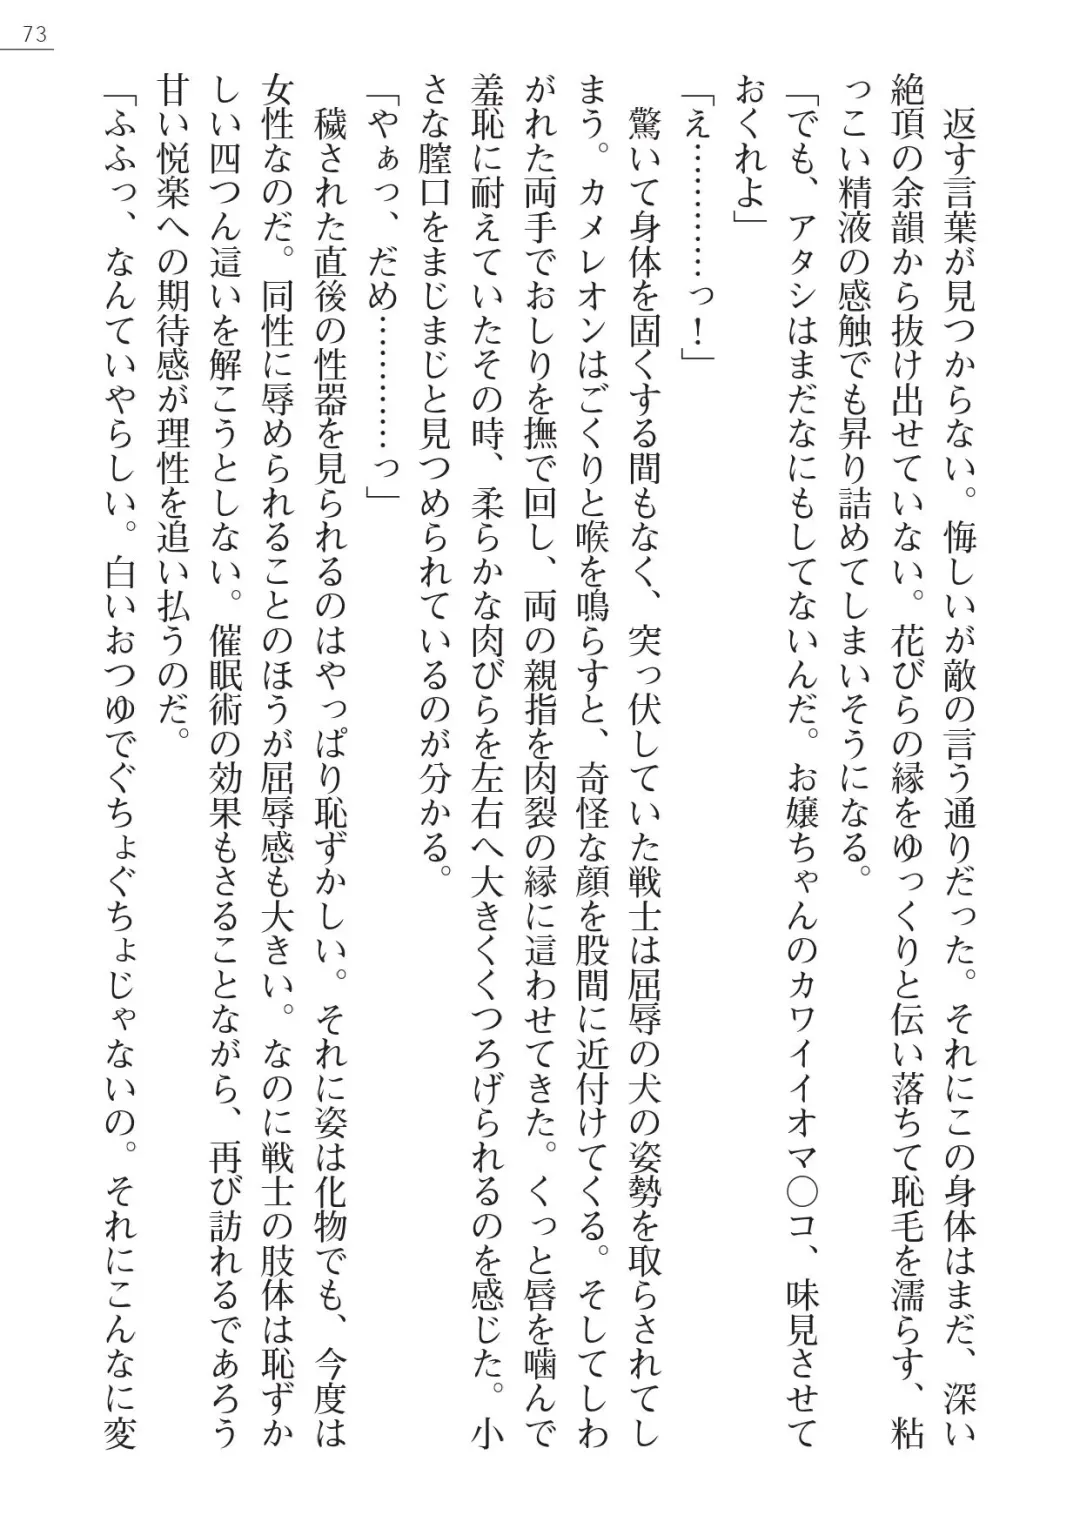 73
返す言葉が見つからない。悔しいが敵の言う通りだった。それにこの身体はまだ、深い
絶頂の余韻から抜け出せていない。花びらの縁をゆっくりと伝い落ちて恥毛を濡らす、粘
っこい精液の感触でも昇り詰めてしまいそうになる。
「でも、アタシはまだなにもしてないんだ。お嬢ちゃんのカワイイオマ〇コ、味見させて
おくれよ」
「え…………っ！」
驚いて身体を固くする間もなく、突っ伏していた戦士は屈辱の犬の姿勢を取らされてし
まう。カメレオンはごくりと喉を鳴らすと、奇怪な顔を股間に近付けてくる。そしてしわ
がれた両手でおしりを撫で回し、両の親指を肉裂の縁に這わせてきた。くっと唇を噛んで
羞恥に耐えていたその時、柔らかな肉びらを左右へ大きくくつろげられるのを感じた。小
さな膣口をまじまじと見つめられているのが分かる。
「やぁっ、だめ…………っ」
穢された直後の性器を見られるのはやっぱり恥ずかしい。それに姿は化物でも、今度は
女性なのだ。同性に辱められることのほうが屈辱感も大きい。なのに戦士の肢体は恥ずか
しい四つん這いを解こうとしない。催眠術の効果もさることながら、再び訪れるであろう
甘い悦楽への期待感が理性を追い払うのだ。
「ふふっ、なんていやらしい。白いおつゆでぐちょぐちょじゃないの。それにこんなに変